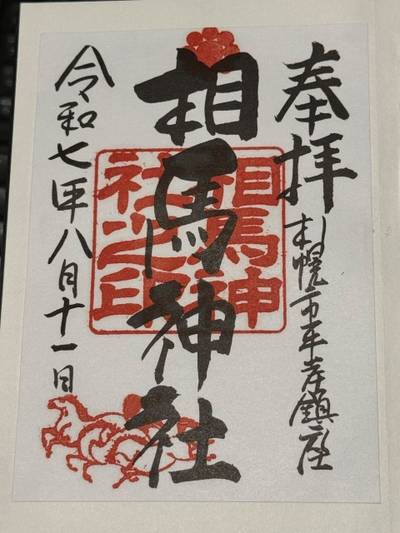 奉拝
札幌市平岸鎮座
相馬神社
相馬神
社之印
令和七年八月十一日